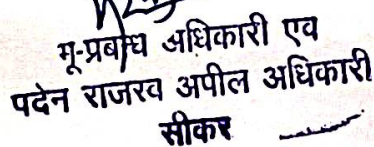 भू-प्रबोध अधिकारी एव
पदेन राजरव अपील अधिकारी
सीकर